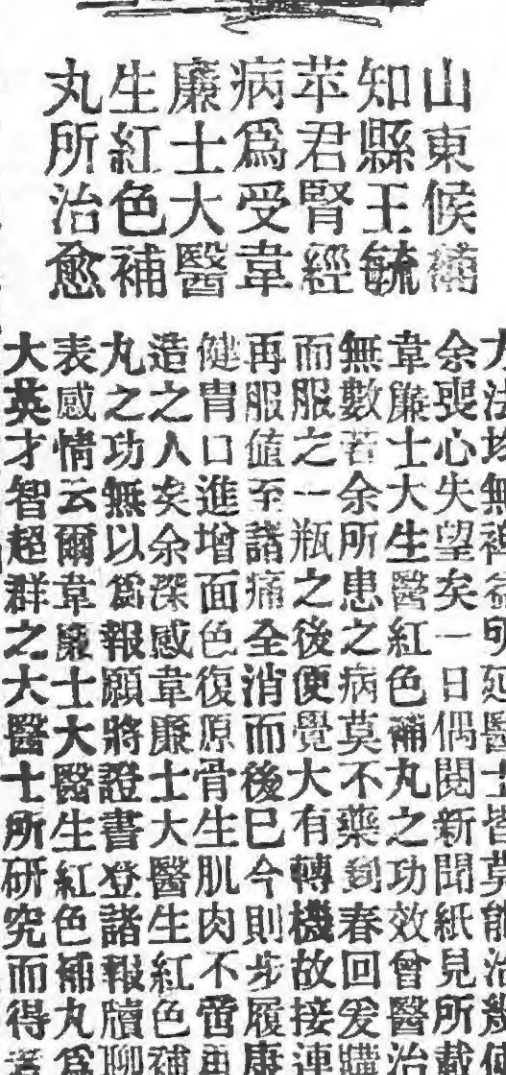 山東候補
知縣王毓
苹君腎經
病爲受韋
廉士大醫
生紅色補
丸所治愈
法均無裨延醫士皆莫能治幾使
余喪心失望矣一日偶閱新聞紙見所載
韋廉士大生醫紅色補丸之功效曾醫治
無數若余所患之病莫不藥到春回爰購
而服之一瓶之後便覺大有轉機故接連
再服値至諸痛全消而後已今則步履康
健胃口進增面色復原骨生肌肉不啻再
造之人矣余深感韋廉士大醫生紅色補
丸之功無以爲報願將證書登諸報牘聊
表感情云爾韋廉士大醫生紅色補丸爲
大英才智超群之大醫士所研究而得者